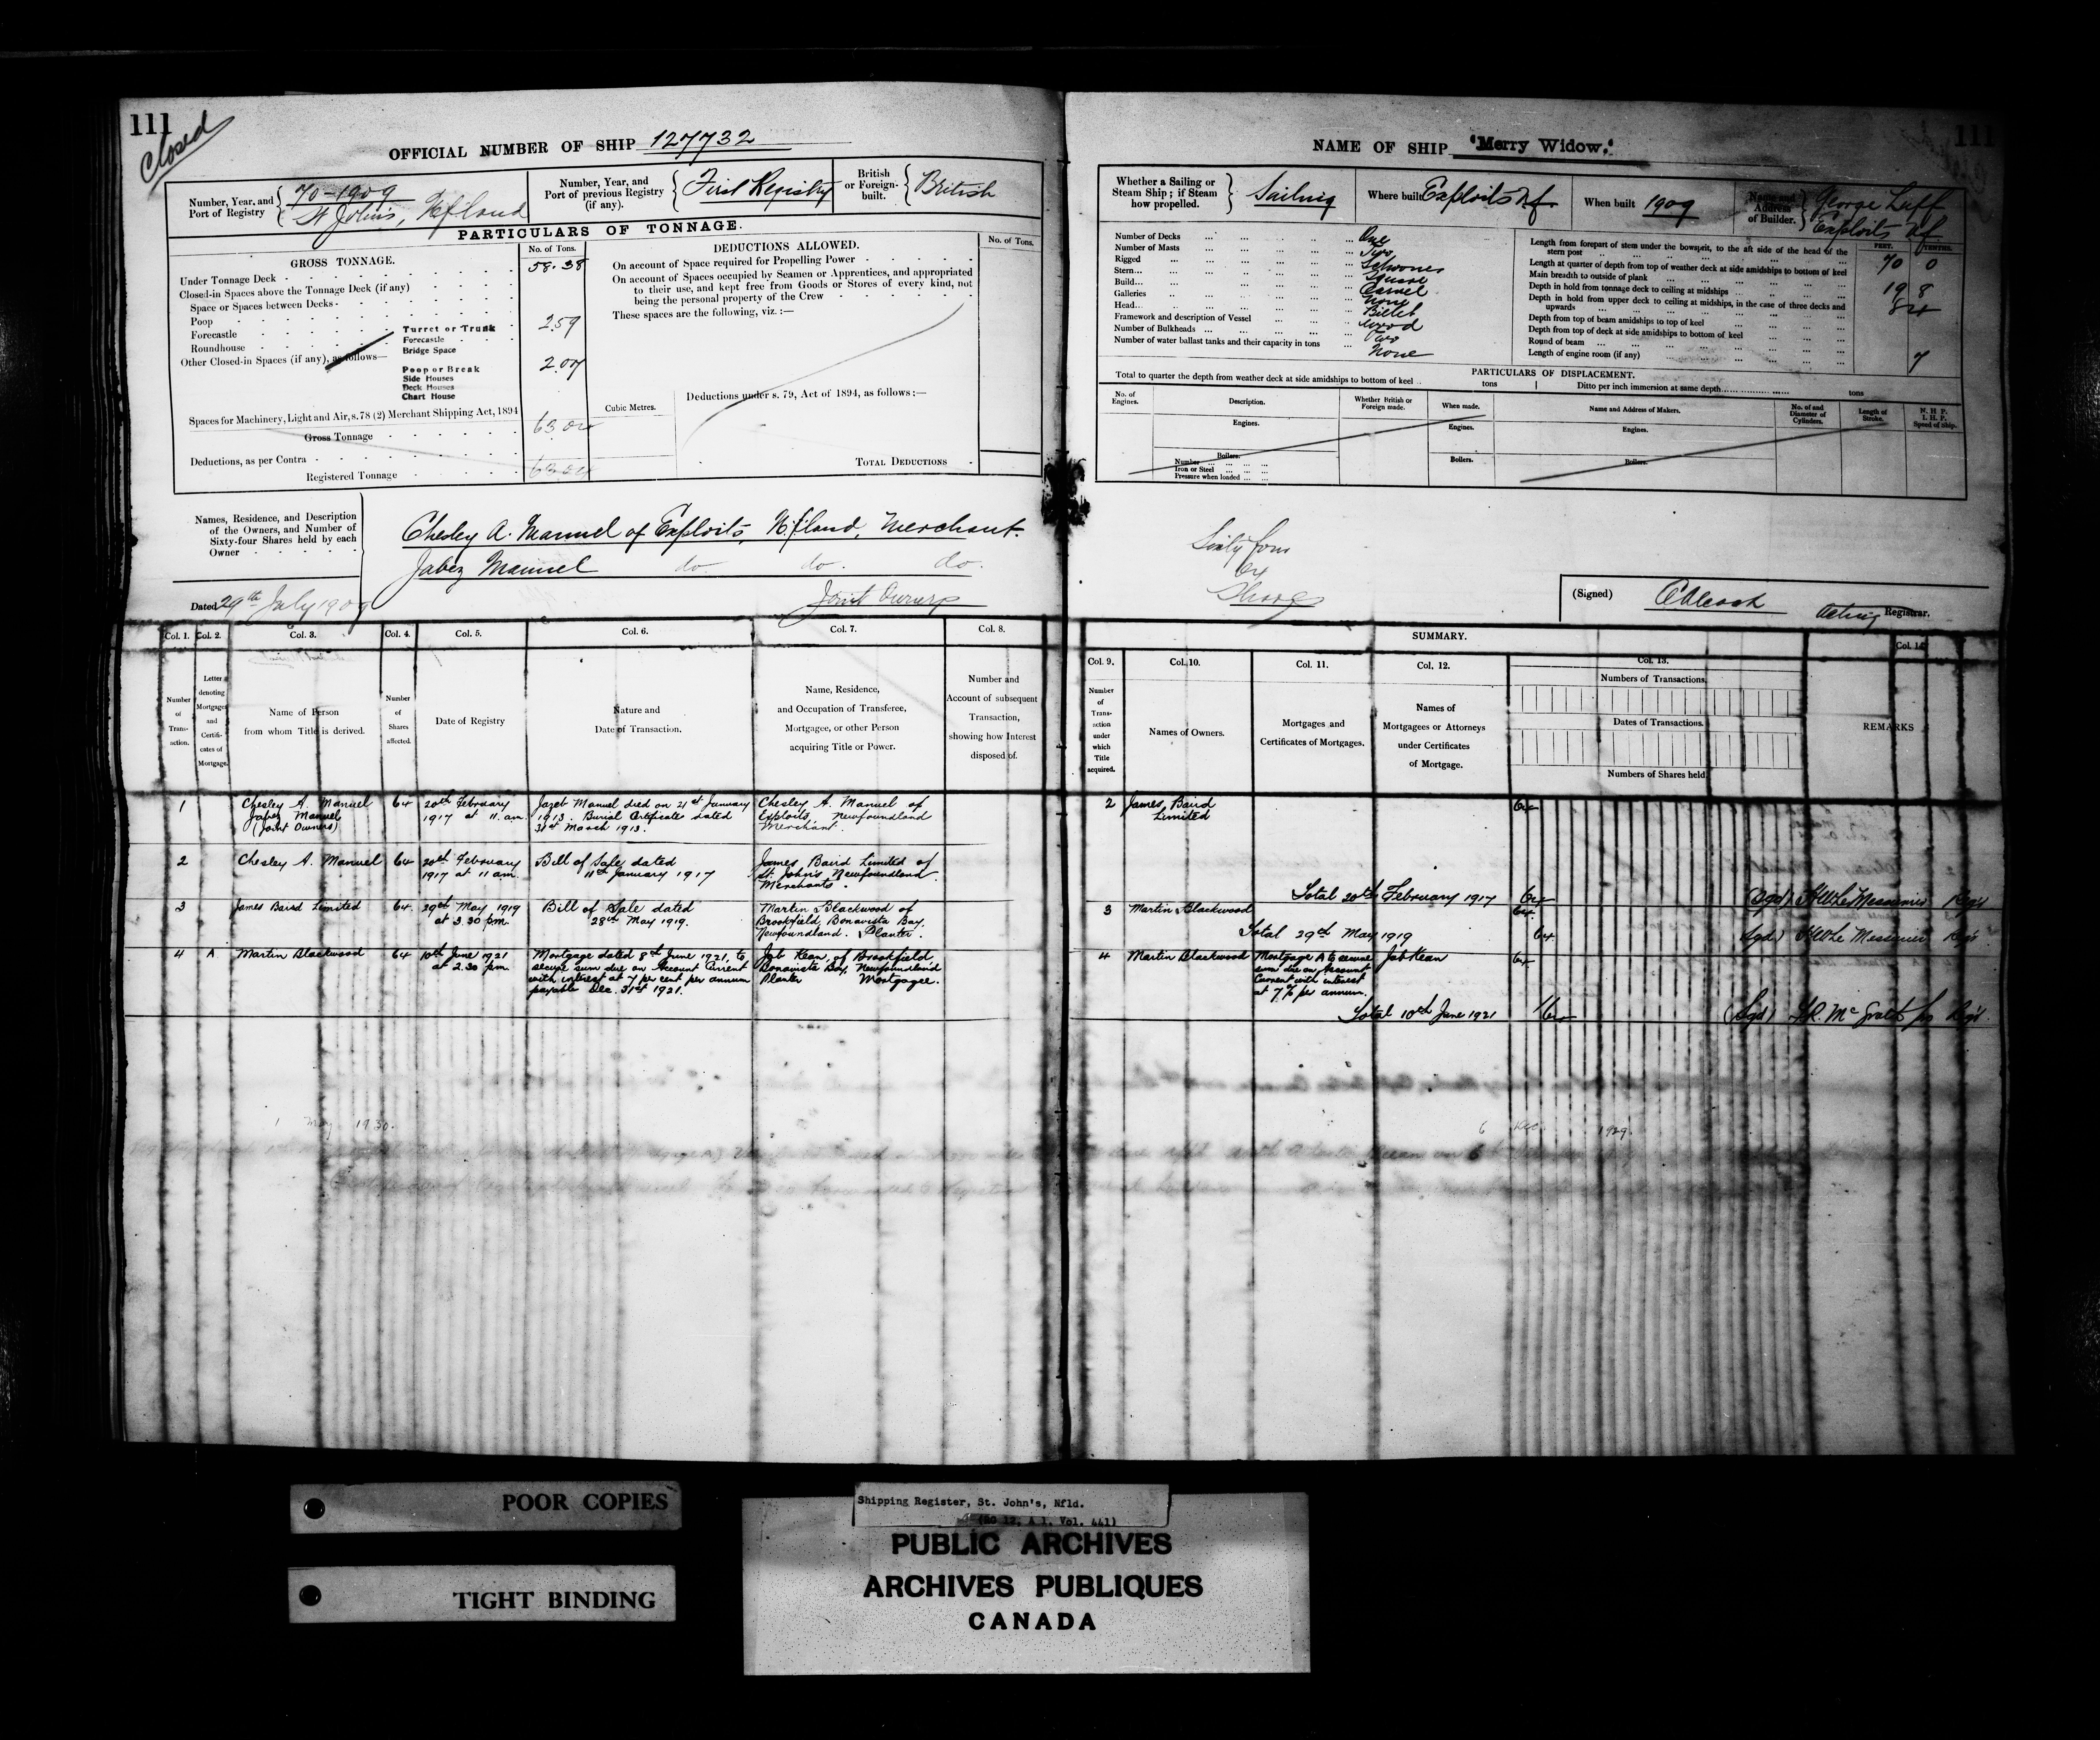 111
Closed
OFFICIAL NUMBER OF SHIP 127732
Number, Year, and Port of Registry { 70-1909 St John's, Nfland
Number, Year, and Port of previous Registry (if any). { First Registry
British or Foreign-built. { British
PARTICULARS OF TONNAGE.
GROSS TONNAGE.
No. of Tons.
Under Tonnage Deck 58.38
Closed-in Spaces above the Tonnage Deck (if any)
Space or Spaces between Decks
Poop
Forecastle
Roundhouse
Other Closed-in Spaces (if any), as follows—
Turret or Trunk 2.59
Forecastle
Bridge Space
Poop or Break 2.07
Side Houses
Deck Houses
Chart House
Spaces for Machinery, Light and Air, s.78 (2) Merchant Shipping Act, 1894
Gross Tonnage 63.04
Deductions, as per Contra
Registered Tonnage 63.04
Cubic Metres.
DEDUCTIONS ALLOWED.
No. of Tons.
On account of Space required for Propelling Power
On account of Spaces occupied by Seamen or Apprentices, and appropriated
to their use, and kept free from Goods or Stores of every kind, not
being the personal property of the Crew
These spaces are the following, viz. :—
Deductions under s. 79, Act of 1894, as follows :—
TOTAL DEDUCTIONS
Names, Residence, and Description
of the Owners, and Number of
Sixty-four Shares held by each
Owner
Chesley A. Manuel of Exploits, Nfland, Merchant.
Jabez Manuel do do. do.
Joint Owners
Dated 29th July 1909
Col. 1. Col. 2. Col. 3. Col. 4. Col. 5. Col. 6. Col. 7. Col. 8.
Number of Transaction.
Letter denoting Mortgages and Certificates of Mortgage.
Name of Person from whom Title is derived.
Number of Shares affected.
Date of Registry
Nature and Date of Transaction.
Name, Residence, and Occupation of Transferee, Mortgagee, or other Person acquiring Title or Power.
Number and Account of subsequent Transaction, showing how Interest disposed of.
1 Chesley A. Manuel Jabez Manuel (Joint Owners) 64 20th February 1917 at 11. am. Jazeb Manuel died on 21st January 1913. Burial Certificate dated 31st March 1913. Chesley A. Manuel of Exploits, Newfoundland Merchant.
2 Chesley A. Manuel 64 20th February 1917 at 11 am. Bill of Sale dated 11th January 1917 James Baird Limited of St. John's Newfoundland Merchants.
3 James Baird Limited 64. 29th May 1919 at 3.30 pm. Bill of Sale dated 28th May 1919. Martin Blackwood of Brookfield, Bonavista Bay, Newfoundland. Planter.
4 A Martin Blackwood 64 10th June 1921 at 2.30 pm. Mortgage dated 8th June 1921, to secure sum due on Account Current with interest at 7 per cent per annum payable Dec. 31st 1921. Job Kean, of Brookfield, Bonavista Bay, Newfoundland Planter Mortgagee.
1 May 1930.
111
NAME OF SHIP 'Merry Widow.'
Whether a Sailing or Steam Ship; if Steam how propelled. } Sailing
Where built Exploits Nf.
When built 1909
Name and Address of Builder. } George Luff Exploits Nf
Number of Decks One
Number of Masts Two
Rigged Schooner
Stern Square
Build Carvel
Galleries None
Head Billet
Framework and description of Vessel Wood
Number of Bulkheads Two
Number of water ballast tanks and their capacity in tons None
FEET. TENTHS.
Length from forepart of stem under the bowsprit, to the aft side of the head of the stern post 70 0
Length at quarter of depth from top of weather deck at side amidships to bottom of keel
Main breadth to outside of plank 19 8
Depth in hold from tonnage deck to ceiling at midships 8
Depth in hold from upper deck to ceiling at midships, in the case of three decks and upwards
Depth from top of beam amidships to top of keel
Depth from top of deck at side amidships to bottom of keel
Round of beam 7
Length of engine room (if any)
PARTICULARS OF DISPLACEMENT.
Total to quarter the depth from weather deck at side amidships to bottom of keel tons
Ditto per inch immersion at same depth tons
No. of Engines.
Description.
Whether British or Foreign made.
When made.
Name and Address of Makers.
No. of and Diameter of Cylinders.
Length of Stroke.
N. H. P. I. H. P. Speed of Ship.
Engines. Engines. Engines.
Boilers. Boilers. Boilers.
Number
Iron or Steel
Pressure when loaded
Sixty four
Shares
(Signed) Acting Registrar.
SUMMARY.
Col. 9. Col. 10. Col. 11. Col. 12. Col. 13. Col. 14
Number of Transaction under which Title acquired.
Names of Owners.
Mortgages and Certificates of Mortgages.
Names of Mortgagees or Attorneys under Certificates of Mortgage.
Numbers of Transactions.
Dates of Transactions.
Numbers of Shares held.
REMARKS
2 James Baird Limited 64
Total 20th February 1917 64 (Sgd) H W Le Messurier Regr
3 Martin Blackwood 64
Total 29th May 1919 64 (Sgd) H W Le Messurier Regr
4 Martin Blackwood Mortgage A to secure sum due on Account Current with interest at 7% per annum. Job Kean 64
Total 10th June 1921 64 (Sgd) Mc Grath Regr
6 Dec 1929.
POOR COPIES
TIGHT BINDING
Shipping Register, St. John's, Nfld.
(RG 12, A 1, Vol. 441)
PUBLIC ARCHIVES
ARCHIVES PUBLIQUES
CANADA